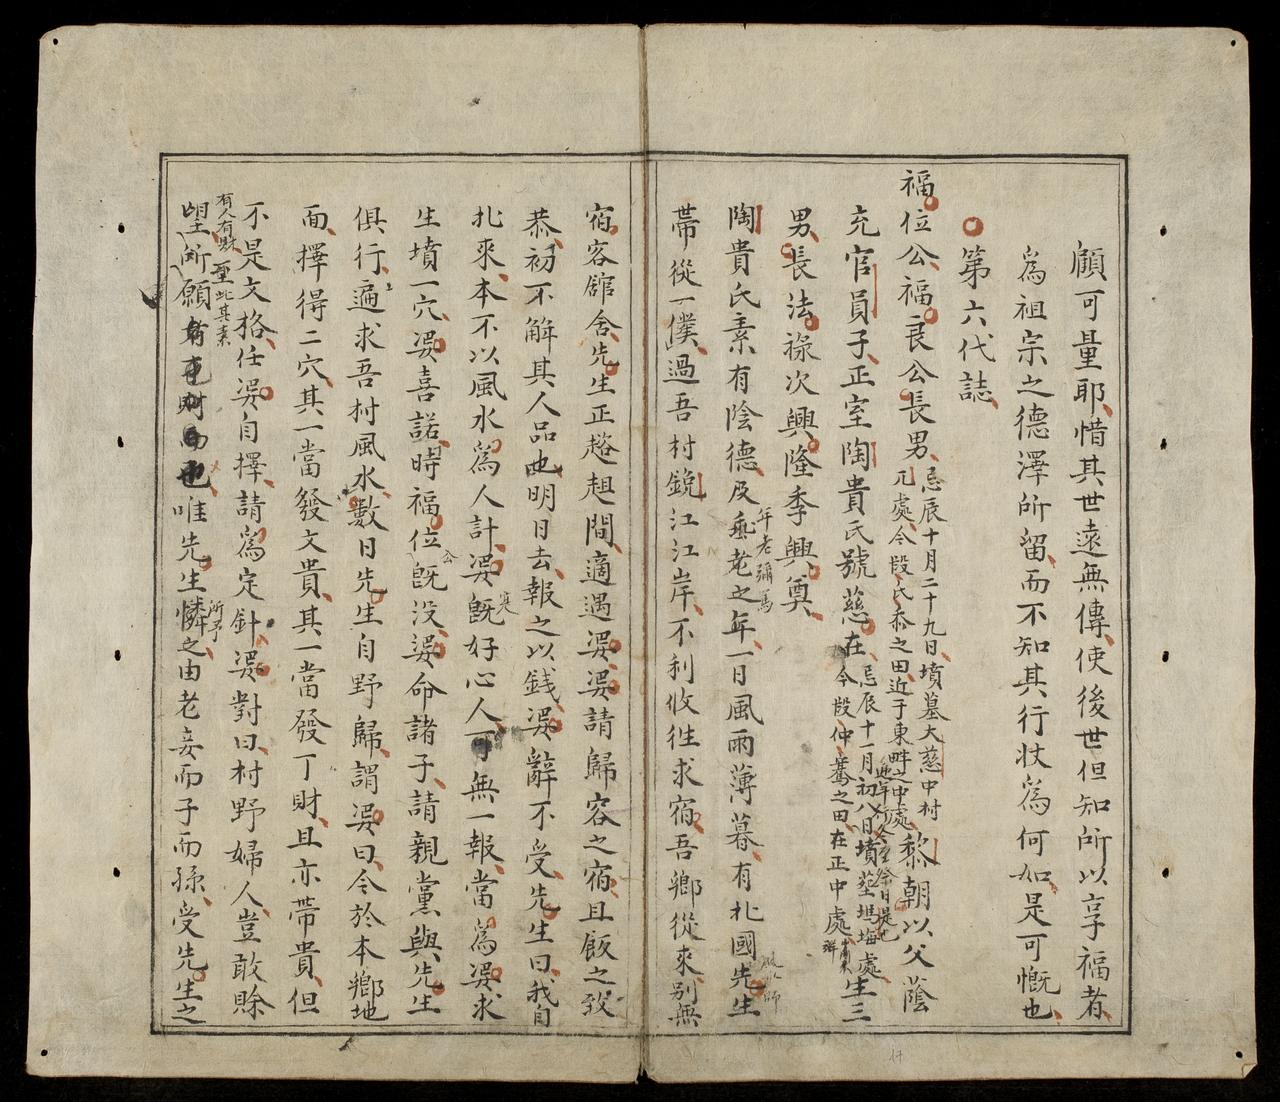 顧可量耶惜其世遠無傳使後世但知所以享福者
為祖宗之德澤所留而不知其行狀為何如是可慨也
第六代誌
福位公福良公長男忌辰十月二十九日墳墓大慈中村元處今段氏祢之田近于東畔之中處黎朝以父蔭
充官員子正室陶貴氏號慈在忌辰十一月初八日墳墓塢塸處今段仲騫之田在正中處生三
男長法祿次興隆季興奠
陶貴氏素有陰德及垂老之年一日風雨薄暮有北國先生
年老彌篤
帶從一僕過吾村銳江江岸不利收往求宿吾鄉從來別無
宿客舘舍先生正趦趄間適遇婆婆請歸容之宿且飯之致
恭初不解其人品也明日去報之以銭婆辭不受先生曰我自
北來本不以風水為人計婆既好心人可無一報當為婆求
生墳一穴婆喜諾時福位公既没婆命諸子請親黨與先生
俱行遍求吾村風水數日先生自野歸謂婆曰今於本鄉地
面擇得二穴其一當發文貴其一當發丁財且亦帶貴但
不是文格任婆自擇請為定針婆對曰村野婦人豈敢賒
有人有財
望所願
至此其素
唯先生憐之由老妾而子而孫受先生之
所予